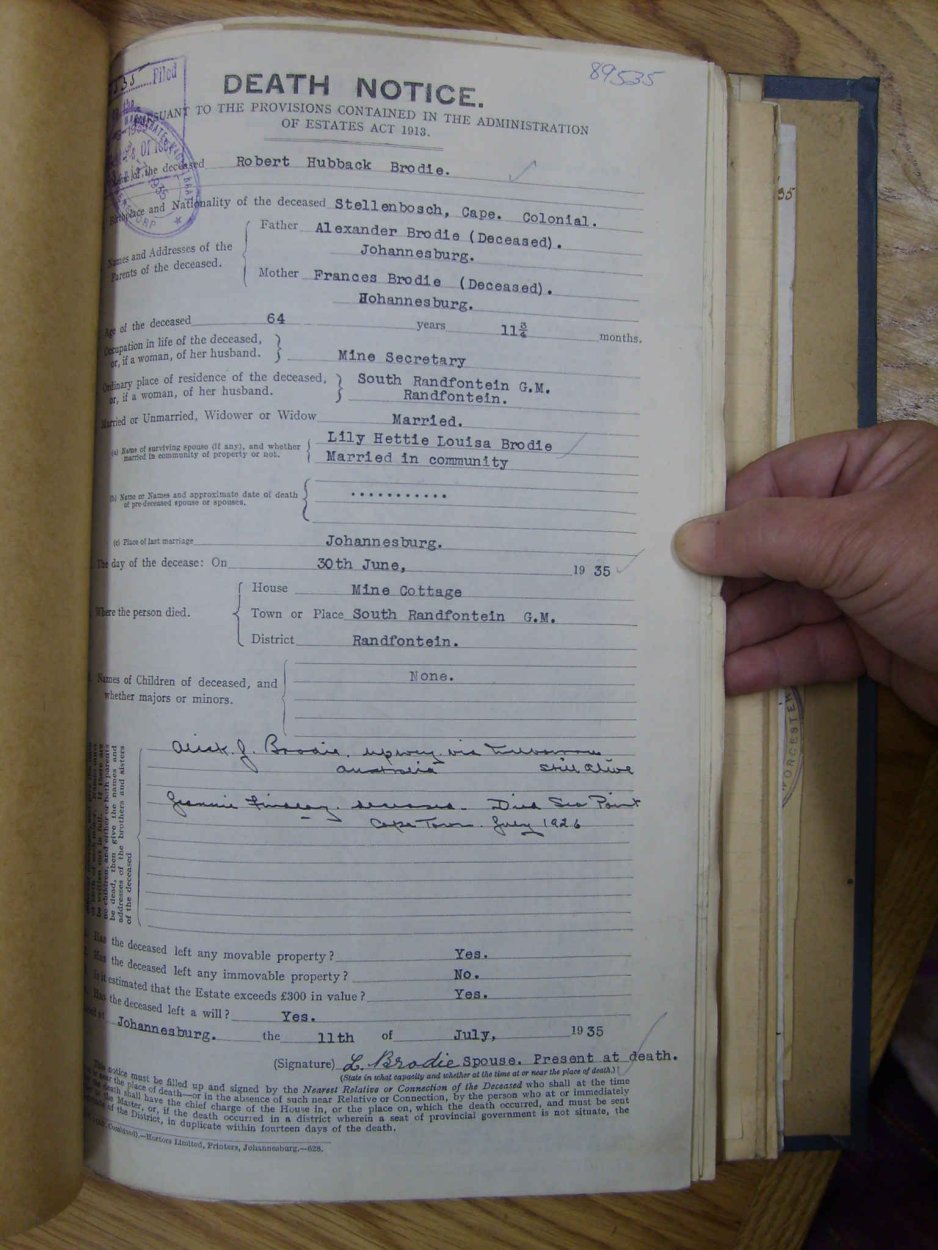 89535
35 Filed
DEATH NOTICE.
PURSUANT TO THE PROVISIONS CONTAINED IN THE ADMINISTRATION
OF ESTATES ACT 1913.
of the deceased Robert Hubback Brodie.
Birthplace and Nationality of the deceased Stellenbosch, Cape. Colonial.
Names and Addresses of the
Parents of the deceased.
Father Alexander Brodie (Deceased).
Johannesburg.
Mother Frances Brodie (Deceased).
Hohannesburg.
Age of the deceased 64 years 11¾ months.
Occupation in life of the deceased,
or, if a woman, of her husband.
Mine Secretary
Ordinary place of residence of the deceased,
or, if a woman, of her husband.
South Randfontein G.M.
Randfontein.
Married or Unmarried, Widower or Widow Married.
(a) Name of surviving spouse (if any), and whether
married in community of property or not.
Lily Hettie Louisa Brodie
Married in community
(b) Name or Names and approximate date of death
of pre-deceased spouse or spouses.
...........
(c) Place of last marriage Johannesburg.
The day of the decease: On 30th June, 19 35
Where the person died.
House Mine Cottage
Town or Place South Randfontein G.M.
District Randfontein.
Names of Children of deceased, and
whether majors or minors.
None.
be dead, then give the names and
addresses of the brothers and sisters
of the deceased
Alick J. Brodie, Upwey via
Australia Still Alive
Jeannie Findlay. deceased. Died Sea Point
Cape Town. July 1926
Has the deceased left any movable property? Yes.
Has the deceased left any immovable property? No.
Is it estimated that the Estate exceeds £300 in value? Yes.
Has the deceased left a will? Yes.
Dated at Johannesburg. the 11th of July, 1935
(Signature) L. Brodie Spouse. Present at death.
(State in what capacity and whether at the time at or near the place of death.)
This notice must be filled up and signed by the Nearest Relative or Connection of the Deceased who shall at the time
or near the place of death—or in the absence of such near Relative or Connection, by the person who at or immediately
the death, shall have the chief charge of the House in, or the place on, which the death occurred, and must be sent
the Master, or, if the death occurred in a district wherein a seat of provincial government is not situate, the
of the District, in duplicate within fourteen days of the death.
Hortors Limited, Printers, Johannesburg.—628.
35